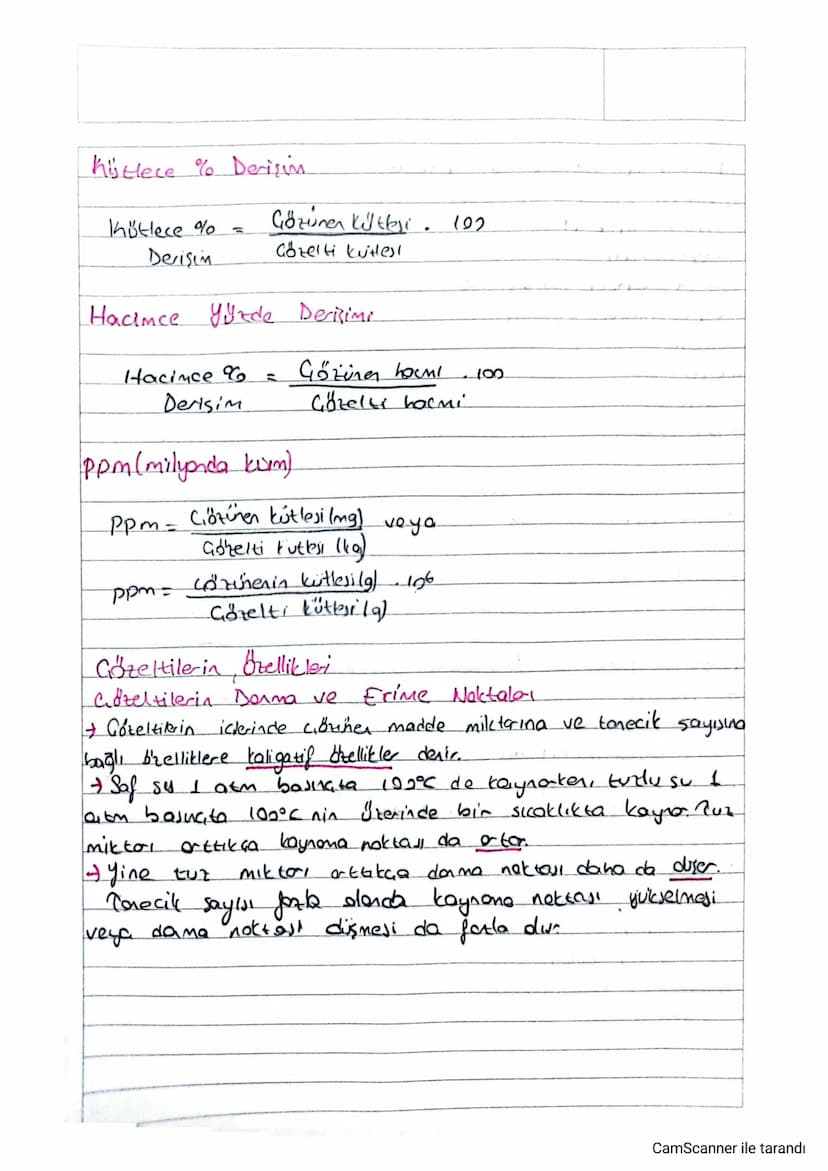 Kütlece % Derişim
Kütlece % = Çözünen kütlesi . 100
Derişim Çözelti kütlesi
Hacimce Yüzde Derişimi
Hacimce % = Çözünen hacmi . 100
Derişim Çözelti hacmi
ppm (milyonda kısım)
Ppm = Çözünen kütlesi (mg) veya
Çözelti kütlesi (kg)
ppm = Çözünenin kütlesi (g) . 10⁶
Çözelti kütlesi (g)
Çözeltilerin Özellikleri
Çözeltilerin Donma ve Erime Noktaları
→ Çözeltilerin içlerinde çözünen madde miktarına ve tanecik sayısına
bağlı özelliklere koligatif özellikler denir.
→ Saf su 1 atm basınçta 100°C de kaynarken, tuzlu su 1
atm basınçta 100°C nin üzerinde bir sıcaklıkta kaynar. Tuz
miktarı arttıkça kaynama noktası da artar.
→ Yine tuz miktarı arttıkça donma noktası daha da düşer.
Tanecik sayısı fazla olanda kaynama noktası yükselmesi
veya donma noktası düşmesi da fazla dır.
CamScanner ile tarandı